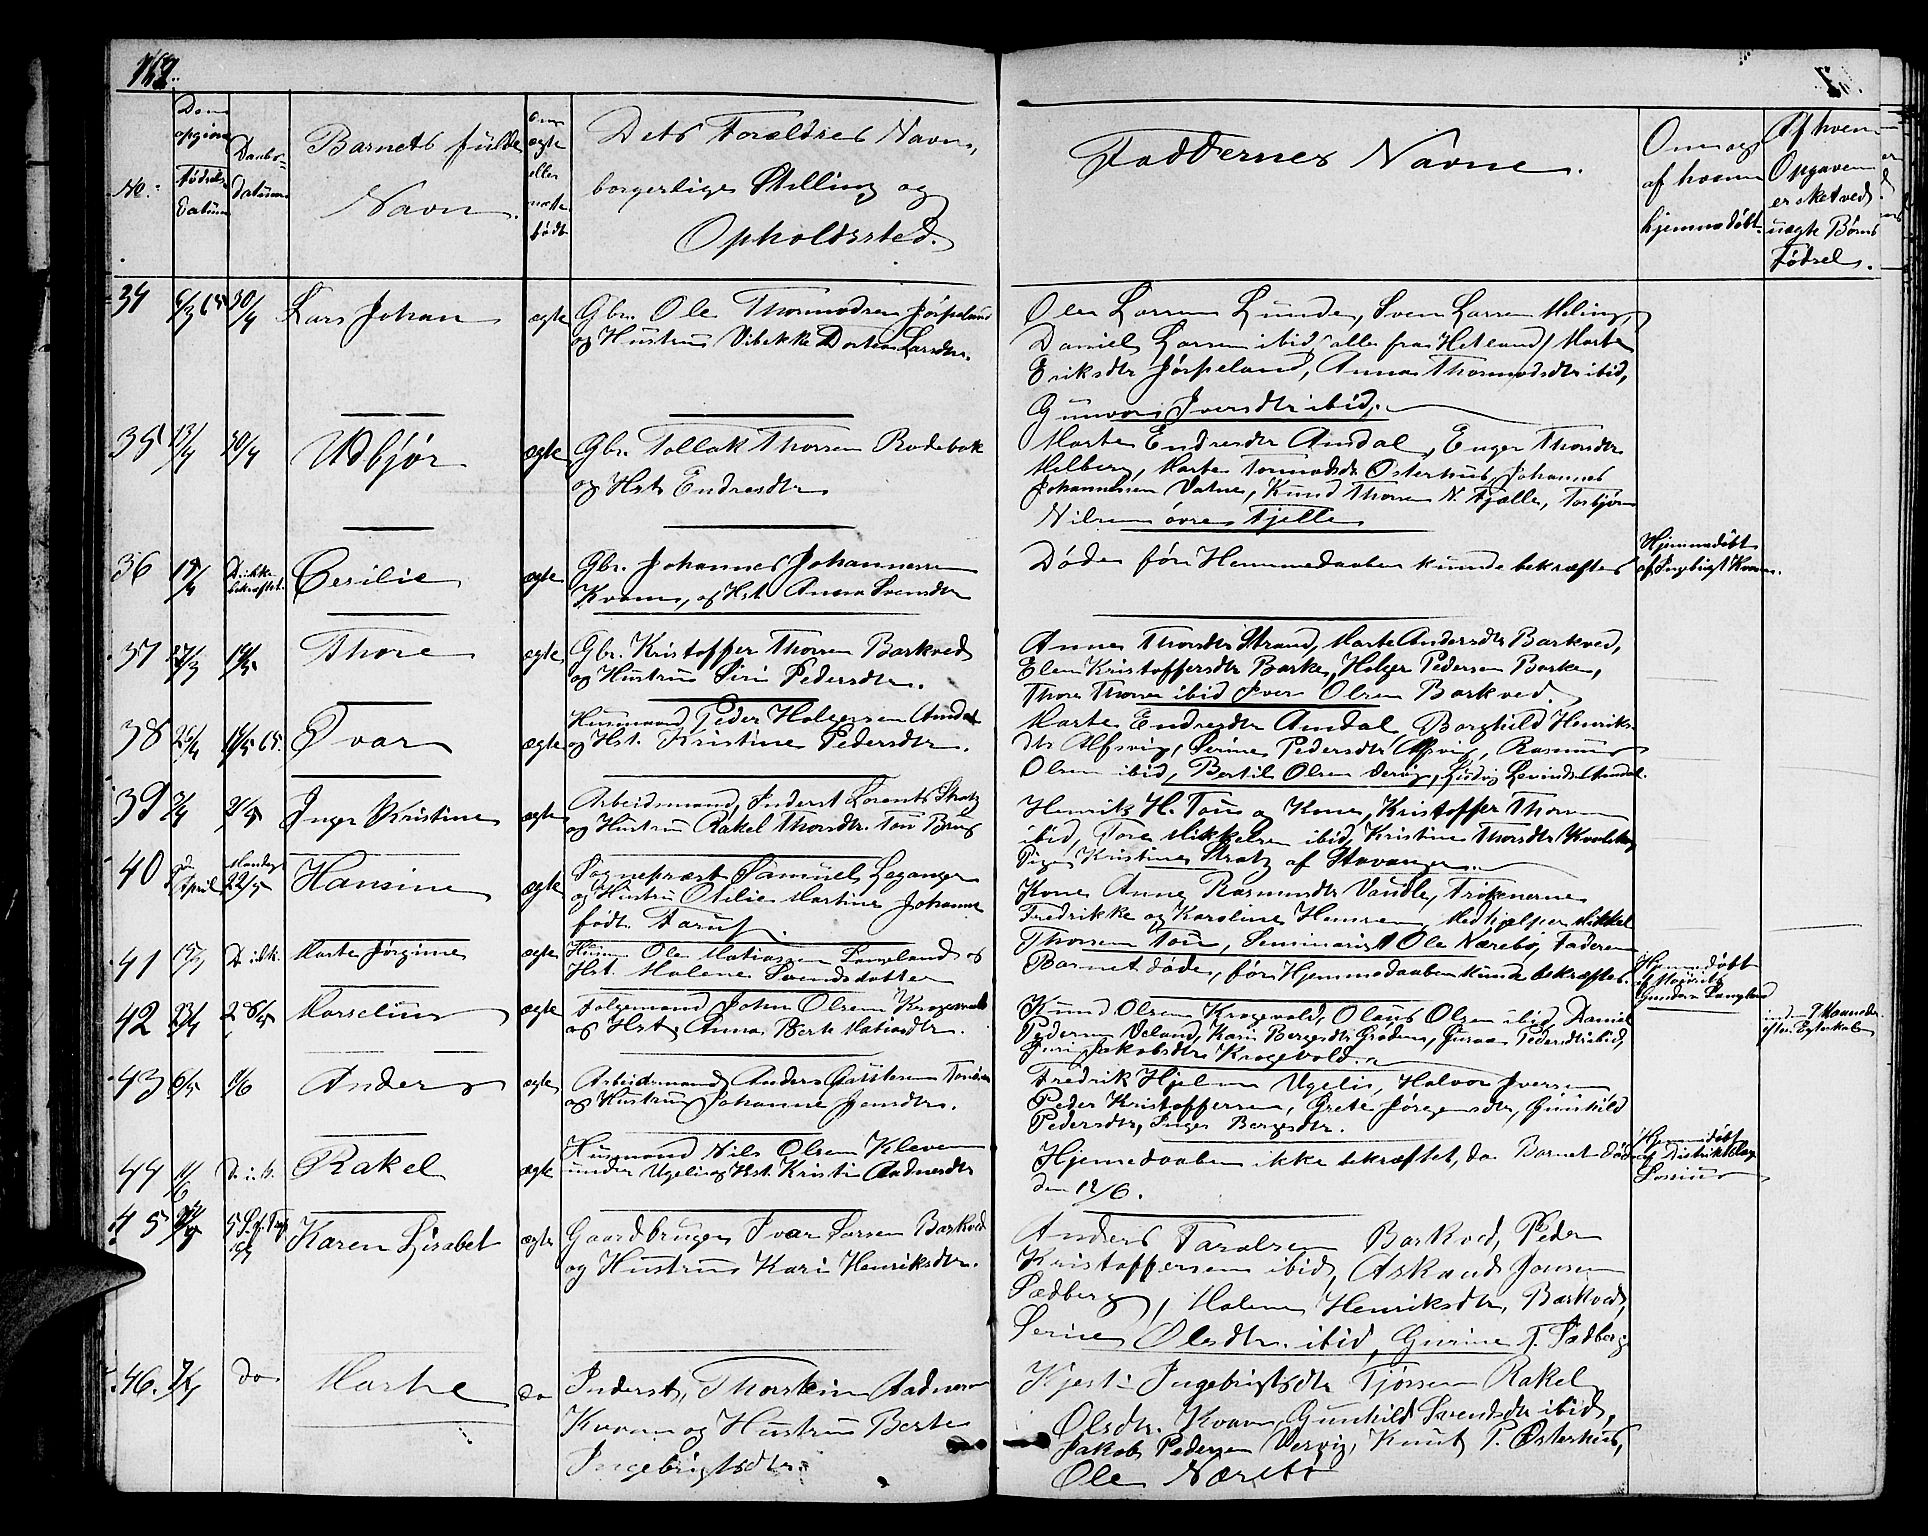 No:
Den opgivne Fødsels Datum
Daabs-Datum
Barnets fulde Navn.
Om ægte eller uægte født
Dets Forældres Navn, borgerlige Stilling og Opholdssted.
Faddernes Navne.
Om og af hvem hjemmedøbt
Af hvem Opgaven er sket ved uægte Børns Fødsel.
34 6/3 65 30/4 Lars Johan ægte Gbr. Ole Thormodsen Jørpeland
og Hustru Vibekke Dortea Larsdtr.
Ole Larsen Lunde, Sven Larsen Meling,
Daniel Larsen ibid, alle fra Hetland, Marte
Eriksdtr Jørpeland, Anna Thormodsdtr ibid,
Gunvor Iversdtr ibid.
35 13/4 30/4 Udbjør ægte Gbr. Tollak Thorsen Bødebak
og Hst Endresdtr
Marte Endresdtr Amdal, Enger Thorsdtr
Melberg, Marte Tormodsdtr Østerhus, Johannes
Johannesen Vatne, Knud Thorsen N. Fjælle, Torbjørn
Nilsen øvre Fjelle
36 19/4 D. ikke bekræftet Cesilie ægte Gbr. Johannes Johannesen
Kvam, og Hst. Anna Svendsdtr
Døde før Hjemmedaaben kunde bekræftes
Hjemmedøbt
af Ingbrigt Kvam.
37 27/3 Thore ægte Gbr. Kristoffer Thorsen Barkved
og Hustru Siri Pedersdtr.
Anne Thorsdtr Strand, Marte Andersdtr Barkved,
Elen Kristoffersdtr Barke, Holger Pedersen Barke,
Thore Thorsen ibid Iver Olsen Barkved
38 26/4 65. Ivar ægte Husmand Peder Holgersen Amdal
og Hst. Kristine Pedersdtr.
Marte Endresdtr Amdal Borghild Henriks-
dtr Alfsvig, Serine Pedersdtr Alfsvig, Rasmus
Olsen ibid, Bertil Olsen
39 Inger Kristine ægte Arbeidsmand, Inderst Lorents Stratz
og Hustru Rakel Thorsdtr. Tou Brug
Henrik H. Tou og Kone, Kristoffer Thorsen
ibid, Tore Mikkelsen ibid, Kristine Thorsdtr
Pige Kristine Stratz af Stavanger
40 April Mandag 22/5 Hansine ægte Sognepræst Samuel Leganger
og Hustru Otilie Martine Johanne
født Faruf.
Kone Anne Rasmusdtr Vaudle, Frøkenerne
Fredrikke og Karoline Hansen, Medhjælper Mikkel
Thorsen Tou, Seminarist Ole Nærebø, Faderen
41 D. ikke Marte Jørgine ægte Husm. Ole Matiassen Langeland og
Hst. Malene Svendsdatter
Barnet døde, før Hjemmedaaben kunde bekræftes.
Hjemmedøbt
42 23/4 28/5 Marselius ægte Folgemand John Olsen Krogevold
og Hst. Anna Berte Matiasdtr.
Knud Olsen Krogevold, Olaus Olsen ibid Daniel
Pedersen Veland, Karen Bergesdtr Grødem, Guroe Pedersdtr ibid,
Siri Jakobsdtr Krogevold.
43 6/5 1/6 Anders ægte Arbeidsmand Anders
og Hustru Johanne Jensdtr.
Fredrik Hjelm Ugelie, Halvor Iversen
Peder Kristoffersen, Grete Jørgensdtr, Gunhild
Pedersdtr, Inger Bergesdtr.
44 11/6 D. ik. Rakel ægte Husmand Nils Olsen Kleven
under Ugelie og Hst. Kristi Aadnesdtr
Hjemedaaben ikke bekræftet, da Barnet døde
den 12/6.
Hjemmedøbt
af Distriktslæge
45 Karen Lisabet ægte Gaardbruger Ivar Larsen Barkved
og Hustru Kari Henriksdtr.
Anders Taralsen Barkved, Peder
Kristoffersen ibid, Askaud Jonsen
Sædberg, Malene Henriksdtr, Barkved,
Serine Olsdtr. ibid, Gurine T. Sædberg
46. do Marte do Inderst, Thorstein Aadnesen
Kvam og Hustru Berte
Ingebrigtsdtr.
Kjersti Ingebrigtsdtr Fjøssen Rakel
Olsdtr. Kvam, Gunhild Svendsdtr ibid,
Jakob Pedersen Vervig, Knut P. Østerhus,
Ole Nærebø